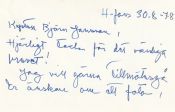 4-fors 30.8-78
Björn Jansson!
Hjärtligt tack för det vänliga
brevet!
Jag vill gärna tillmötesgå
Er önskan om ett foto!